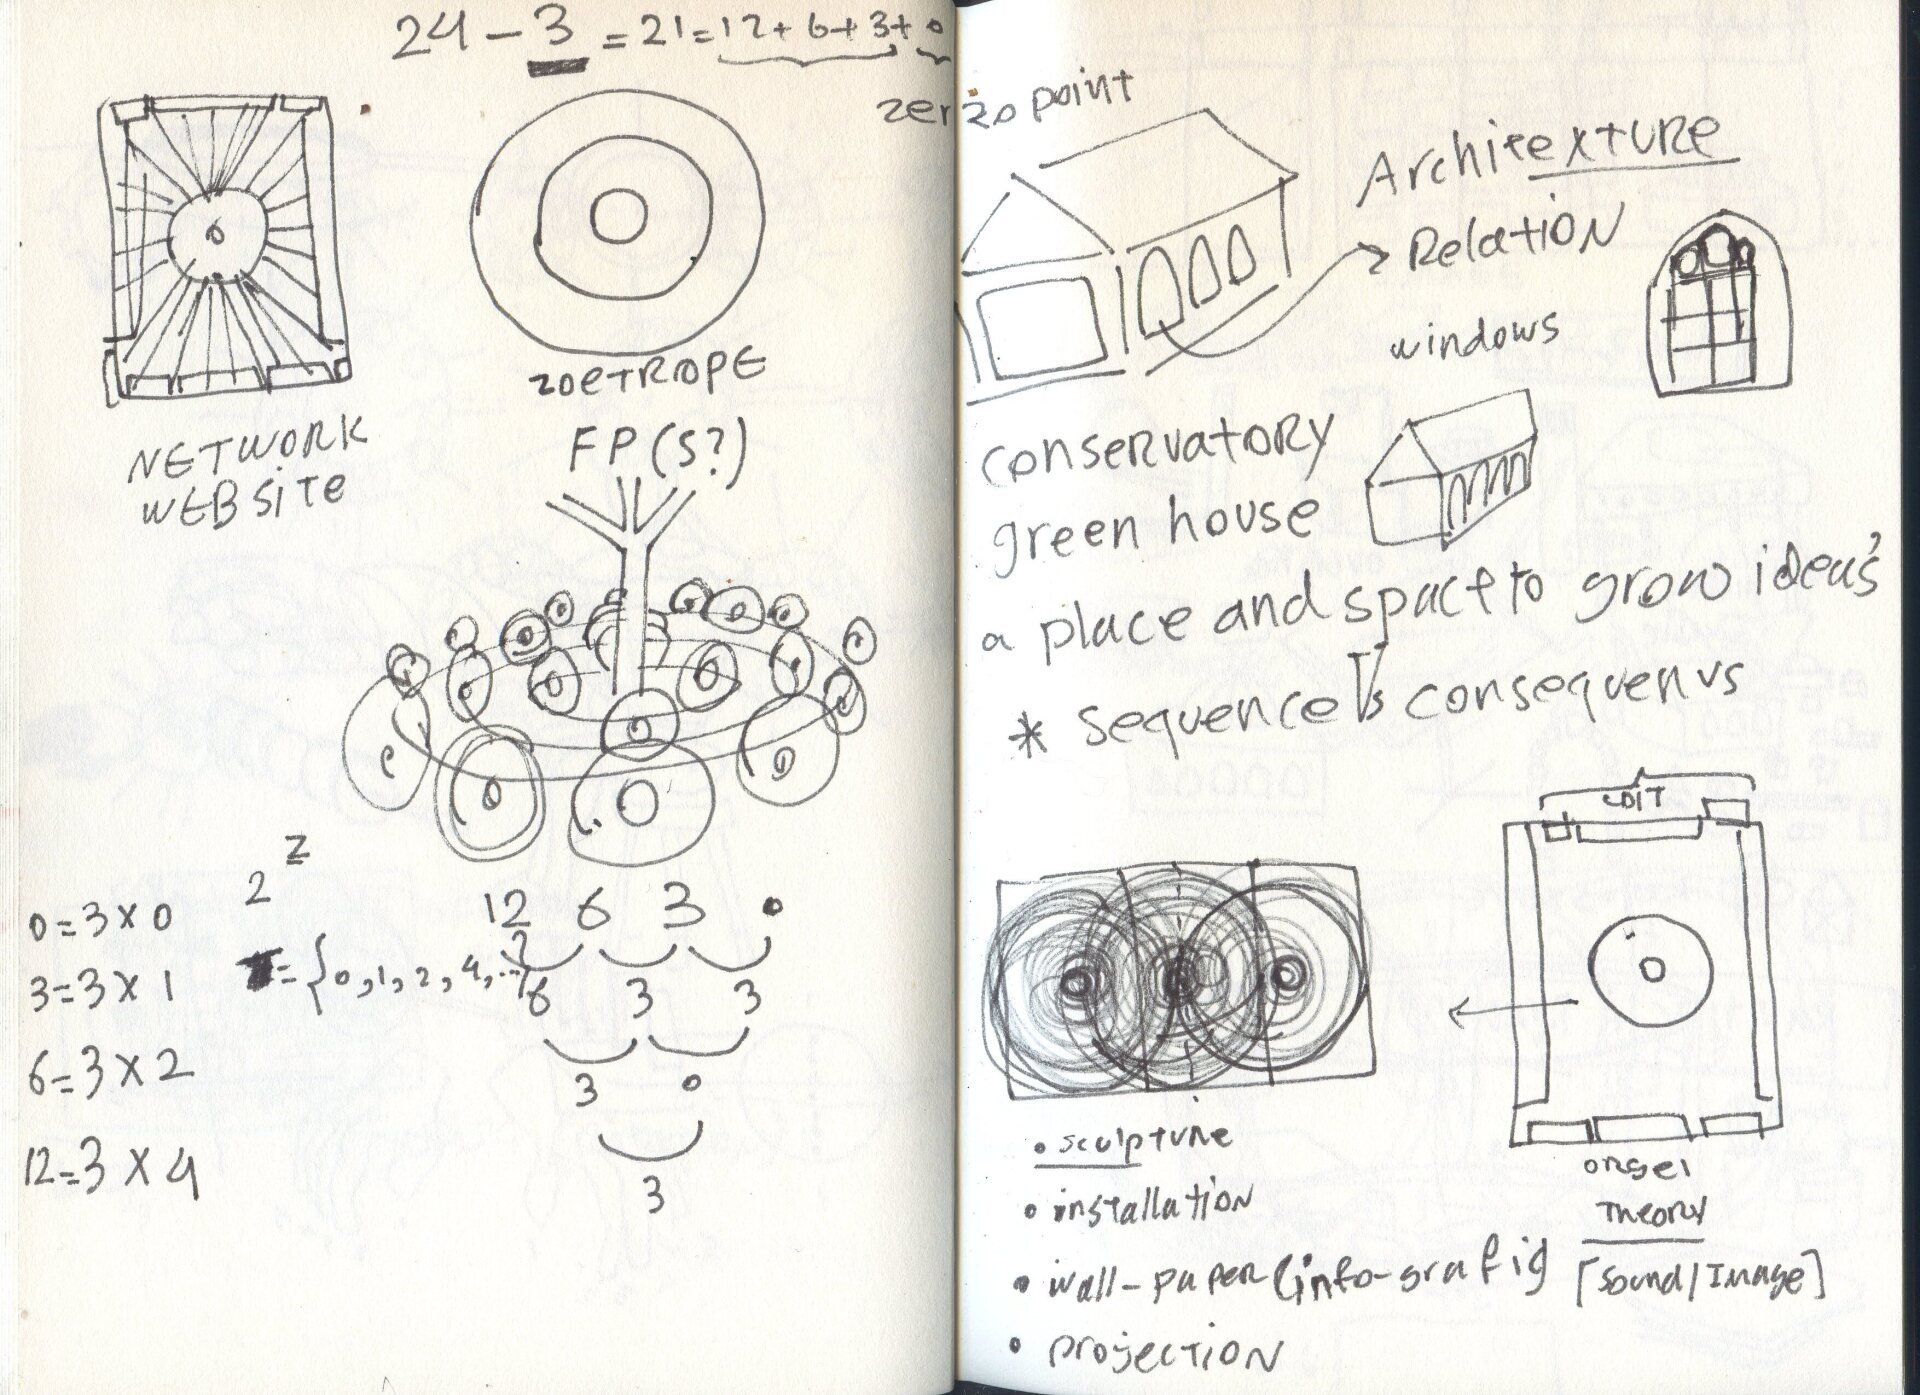 24 - 3 = 21 = 12 + 6 + 3 + 0
zero point
6
NETWORK
WEBSITE
ZOETROPE
FP (S?)
2 z
0 = 3 x 0
3 = 3 x 1
6 = 3 x 2
12 = 3 x 4
= {0, 1, 2, 4, ...}
12 6 3 0
6 3 3
3 0
3
Architexture
Relation
windows
conservatory
green house
a place and space to grow ideas'
* sequence Vs consequenvs
EDIT
orgel
Theory
[Sound/Image]
• sculpture
• installation
• wall-paper (info-grafig
• projection